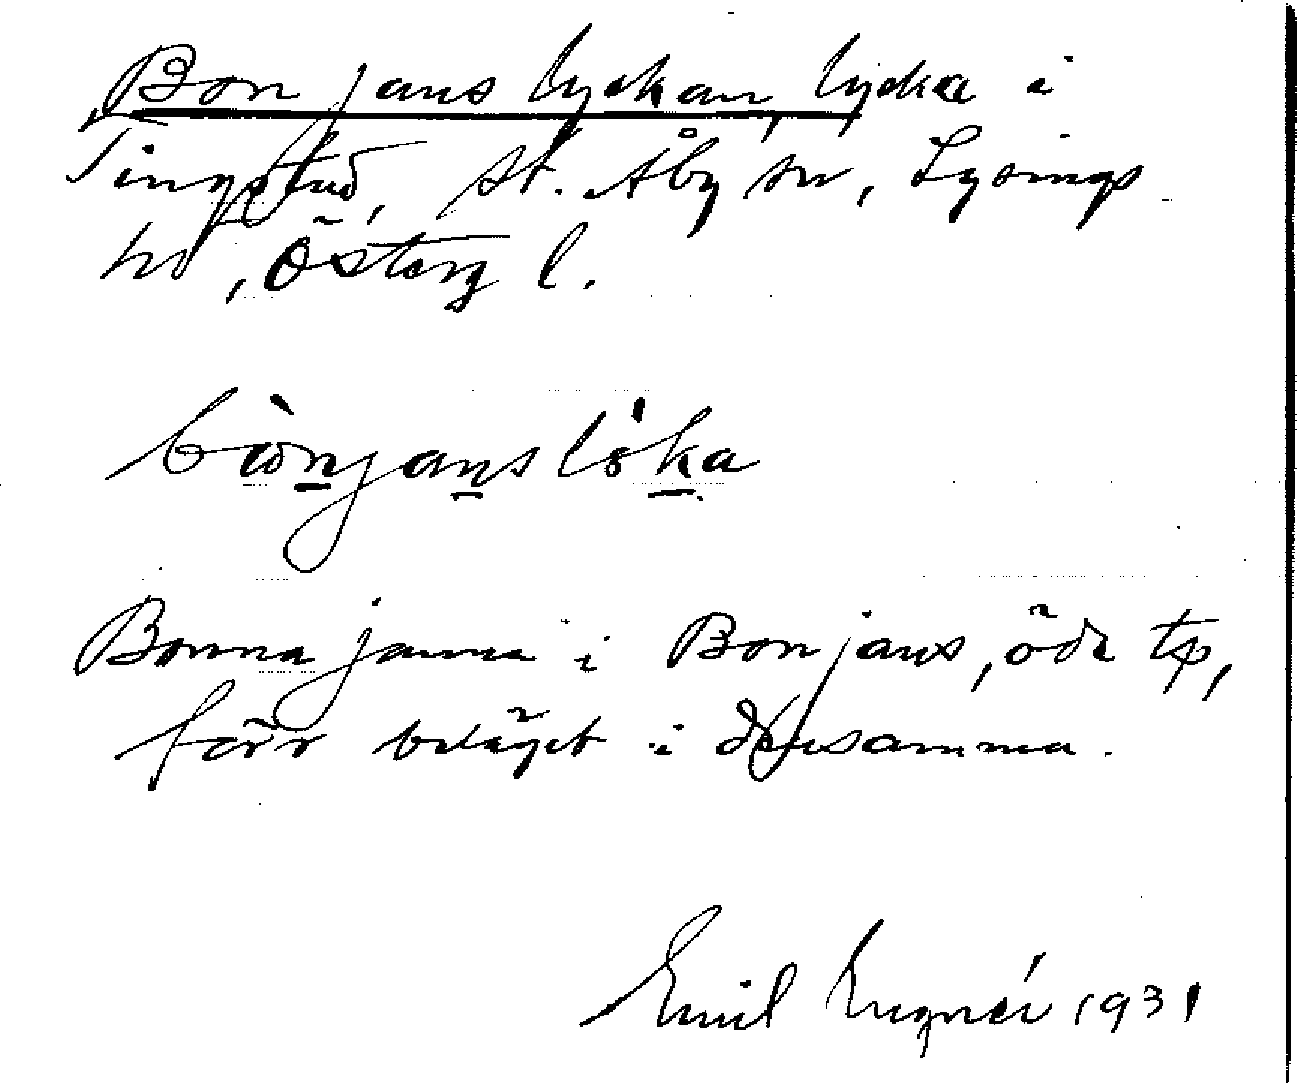 Bonjanslyckan, lycka i
Tingstad, st. Åby sn, Lysings
hd, Österg l.
bònjanslöka
Bonna janna i Bonjans, öde tp,
förr beläget i densamma.
Emil Lugnér 1931